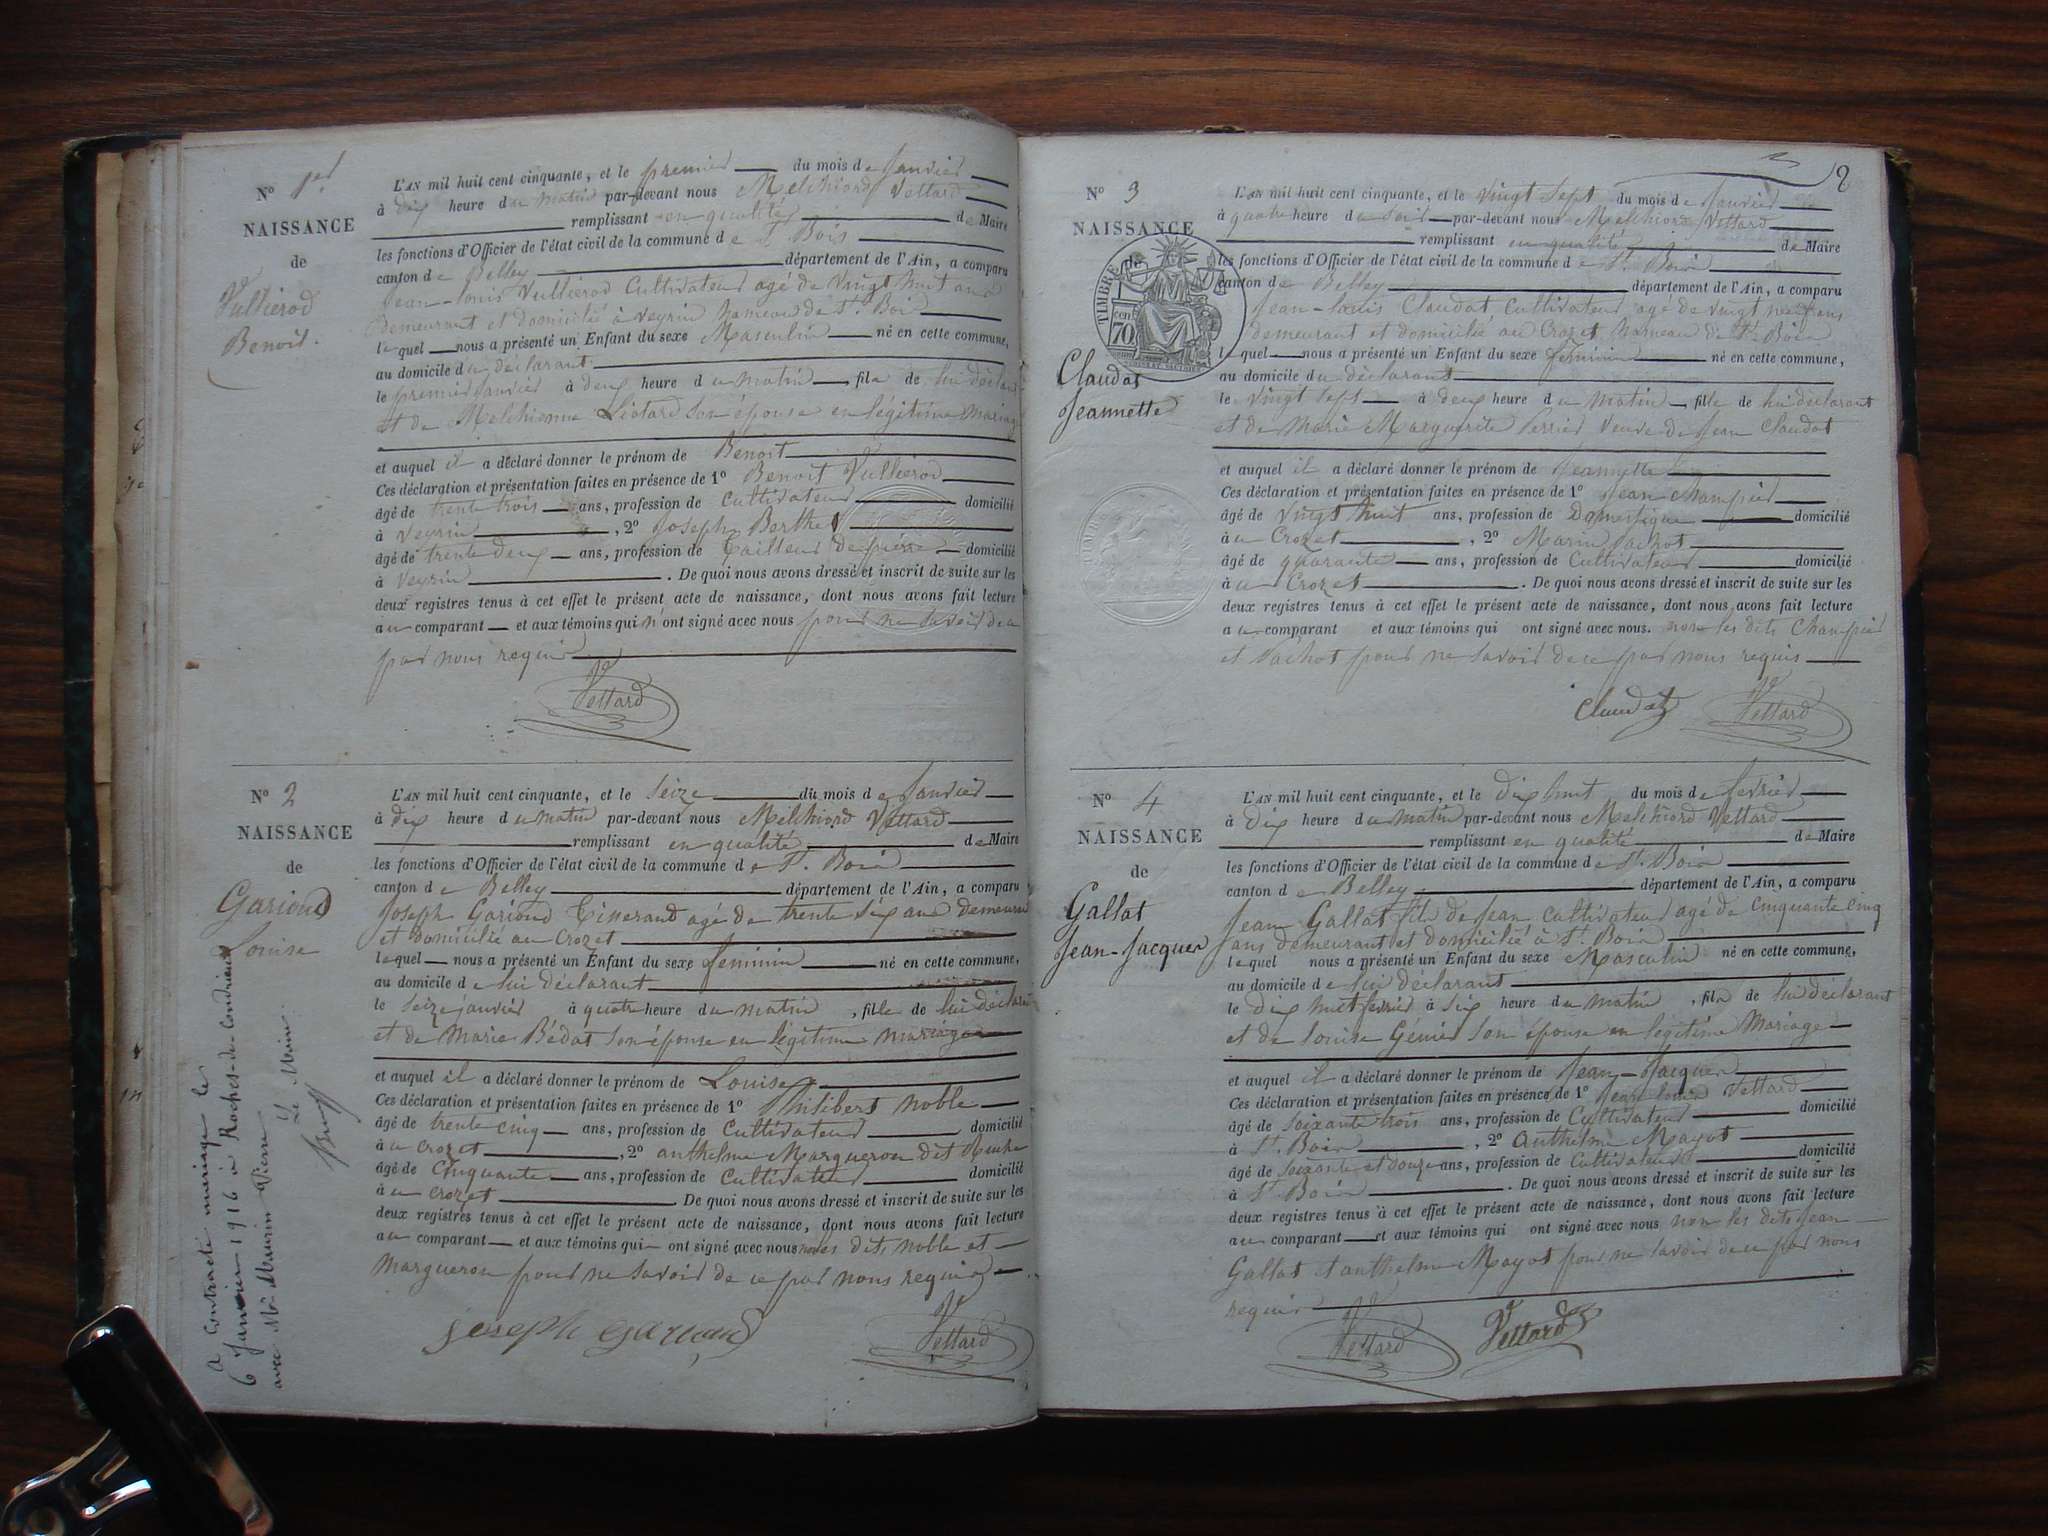 N° 1er
NAISSANCE
de
Vullierod
Benoit.
L'AN mil huit cent cinquante, et le premier du mois de Janvier
à dix heure du matin par-devant nous Melchiord Vettard
remplissant en qualité de Maire
les fonctions d'Officier de l'état civil de la commune de St. Bois
canton de Belley département de l'Ain, a comparu
Jean-Louis Vullierod Cultivateur agé de vingt huit ans
demeurant et domicilié à Veyrin hameau de St. Bois
lequel nous a présenté un Enfant du sexe Masculin né en cette commune,
au domicile du déclarant
le premier Janvier à deux heure du matin, fils de lui déclarant
et de Melchionne Liotard son épouse en légitime mariage
et auquel il a déclaré donner le prénom de Benoit
Ces déclaration et présentation faites en présence de 1° Benoit Vullierod
âgé de trente trois ans, profession de Cultivateur domicilié
à Veyrin, 2° Joseph Berthet
âgé de trente deux ans, profession de Tailleur de pierre domicilié
à Veyrin. De quoi nous avons dressé et inscrit de suite sur les
deux registres tenus à cet effet le présent acte de naissance, dont nous avons fait lecture
au comparant et aux témoins qui n'ont signé avec nous pour ne savoir de ce
par nous requis
Vettard
N° 2
NAISSANCE
de
Gariond
Louise
a contracté mariage le
6 Janvier 1916 à Roches-de-Condrieu
avec Mr Maurin Pierre
Le Maire
L'AN mil huit cent cinquante, et le seize du mois de Janvier
à dix heure du matin par-devant nous Melchiord Vettard
remplissant en qualité de Maire
les fonctions d'Officier de l'état civil de la commune de St. Bois
canton de Belley département de l'Ain, a comparu
Joseph Gariond Tisserand agé de trente six ans demeurant
et domicilié au Crozet
lequel nous a présenté un Enfant du sexe feminin né en cette commune,
au domicile de lui déclarant
le seize janvier à quatre heure du matin, fille de lui déclarant
et de Marie Bédat son épouse en légitime mariage
et auquel il a déclaré donner le prénom de Louise
Ces déclaration et présentation faites en présence de 1° Philibert Noble
âgé de trente cinq ans, profession de Cultivateur domicilié
à au Crozet, 2° anthelme Margueron dit
âgé de Cinquante ans, profession de Cultivateur domicilié
à au Crozet. De quoi nous avons dressé et inscrit de suite sur les
deux registres tenus à cet effet le présent acte de naissance, dont nous avons fait lecture
au comparant et aux témoins qui ont signé avec nous non les dits noble et
Margueron pour ne savoir de ce par nous requis
joseph gariond Vettard
2
N° 3
NAISSANCE
de
TIMBRE
70
cen
Claudat
Jeannette
L'AN mil huit cent cinquante, et le vingt sept du mois de Janvier
à quatre heure du soir par-devant nous Melchiord Vettard
remplissant en qualité de Maire
les fonctions d'Officier de l'état civil de la commune de St. Bois
canton de Belley département de l'Ain, a comparu
Jean-Louis Claudat Cultivateur agé de vingt neuf ans
demeurant et domicilié au Crozet hameau de St. Bois
lequel nous a présenté un Enfant du sexe feminin né en cette commune,
au domicile du déclarant
le vingt sept à deux heure du matin, fille de lui déclarant
et de Marie Marguerite Perrier veuve de Jean Claudat
et auquel il a déclaré donner le prénom de Jeannette
Ces déclaration et présentation faites en présence de 1° Jean Champier
âgé de vingt huit ans, profession de Domestique domicilié
à au Crozet, 2° Marin Vachot
âgé de quarante ans, profession de Cultivateur domicilié
à au Crozet. De quoi nous avons dressé et inscrit de suite sur les
deux registres tenus à cet effet le présent acte de naissance, dont nous avons fait lecture
au comparant et aux témoins qui ont signé avec nous. non les dits Champier
et Vachot pour ne savoir de ce par nous requis
Claudat Vettard
N° 4
NAISSANCE
de
Gallat
Jean-Jacques
L'AN mil huit cent cinquante, et le dix huit du mois de février
à dix heure du matin par-devant nous Melchiord Vettard
remplissant en qualité de Maire
les fonctions d'Officier de l'état civil de la commune de St. Bois
canton de Belley département de l'Ain, a comparu
Jean Gallat fils de Jean cultivateur agé de Cinquante cinq
ans demeurant et domicilié à St. Bois
lequel nous a présenté un Enfant du sexe Masculin né en cette commune,
au domicile de lui déclarant
le dix huit février à six heure du matin, fils de lui déclarant
et de Louise Génier son épouse en légitime Mariage
et auquel il a déclaré donner le prénom de Jean-Jacques
Ces déclaration et présentation faites en présence de 1° Jean Louis Vettard
âgé de soixante trois ans, profession de Cultivateur domicilié
à St. Bois, 2° Anthelme Mayot
âgé de soixante et douze ans, profession de Cultivateur domicilié
à St. Bois. De quoi nous avons dressé et inscrit de suite sur les
deux registres tenus à cet effet le présent acte de naissance, dont nous avons fait lecture
au comparant et aux témoins qui ont signé avec nous non les dits Jean
Gallat et anthelme Mayot pour ne savoir de ce par nous
requis
Vettard Vettard